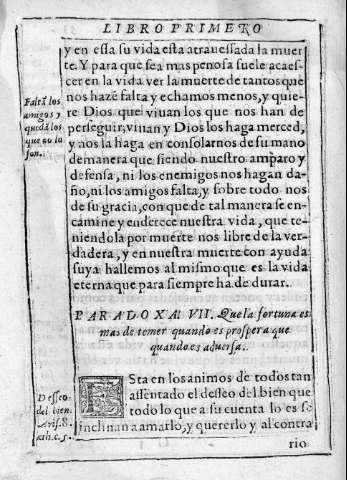 LIBRO PRIMERO
y en esta su vida esta atrauessada la muer
te. Y para que sea mas penosa suele acaes-
cer en la vida ver la muerte de tantos que
nos hazē falta y echamos menos, y quie-
re Dios que viuan los que nos han de
perseguir, viuan y Dios los haga merced,
y nos la haga en consolarnos de su mano
de manera que siendo nuestro amparo y
defensa, ni los enemigos nos hagan da-
ño, ni los amigos falta, y sobre todo nos
de su gracia, con que de tal manera se en-
camine y enderece nuestra vida, que te-
niendola por muerte nos libre de la ver-
dadera, y en nuestra muerte con ayuda
suya hallemos al mismo que es la vida
eterna que para siempre ha de durar.
Faltā los
amigos y
quedā los
que no lo
son.
PARADOXA VII. Que la fortuna es
mas de temer quando es prospera que
quando es aduersa.
ESta en los animos de todos tan
assentado el desseo del bien que
todo lo que a su cuenta lo es se
inclinan a amarlo, y quererlo y al contra
Desseo
del bien.
Aris. 8.
rio